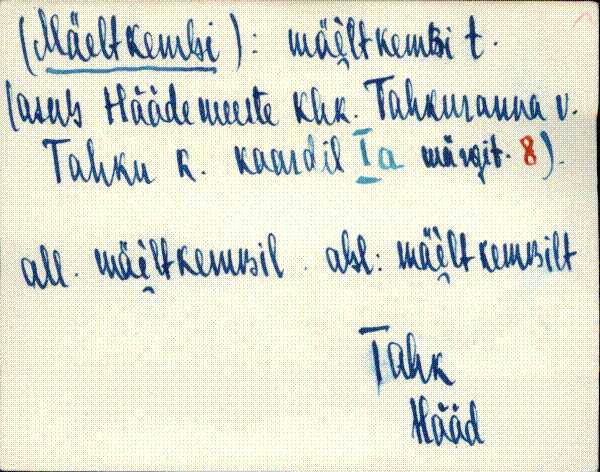 (Mäeltkembi): mäe̬ltkemʙi t.
(asub Häädemeeste khk. Tahkuranna v.
Tahku k. kaardil Ia märgit. 8).
all. mäe̬ltkemʙil. abl: mäe̬ltkemʙilt
Tahk
Hääd